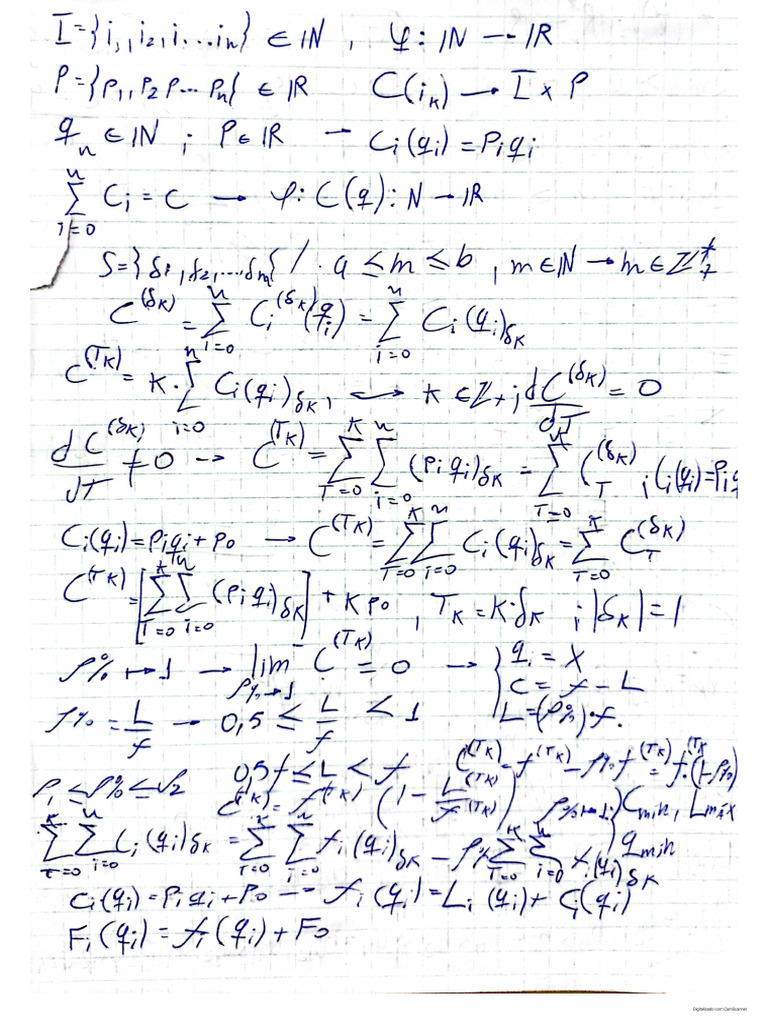 I = {i₁, i₂, i... iₙ} ∈ ℕ , φ: ℕ → ℝ
P = {p₁, p₂ p... pₙ} ∈ ℝ C(iₖ) → I × P
qₙ ∈ ℕ ; P ∈ ℝ → Cᵢ(qᵢ) = Pᵢqᵢ
∑ᵢ₌₀ⁿ Cᵢ = C → φ: C(q): N → ℝ
S = {δ₁, δ₂, ... δₘ} / · a ≤ m ≤ b , m ∈ ℕ → m ∈ ℤ⁺
C^(δₖ) = ∑ᵢ₌₀ⁿ Cᵢ^(δₖ)(qᵢ) = ∑ᵢ₌₀ⁿ Cᵢ(qᵢ)δₖ
C^(Tₖ) = K · ∑ᵢ₌₀ⁿ Cᵢ(qᵢ)δₖ , K ∈ ℤ₊ ; dC^(δₖ)/dT = 0
dC^(δₖ)/dT ≠ 0 → C^(Tₖ) = ∑_T₌₀ᴷ ∑ᵢ₌₀ⁿ (pᵢqᵢ)δₖ = ∑_T₌₀ᴷ C_T^(δₖ) ; Cᵢ(qᵢ) = Pᵢq
Cᵢ(qᵢ) = pᵢqᵢ + p₀ → C^(Tₖ) = ∑_T₌₀ᴷ ∑ᵢ₌₀ⁿ Cᵢ(qᵢ)δₖ = ∑_T₌₀ᴷ C_T^(δₖ)
C^(Tₖ) = [∑_T₌₀ᴷ ∑ᵢ₌₀ⁿ (pᵢqᵢ)δₖ] + K p₀ , Tₖ = K·δₖ ; |δₖ| = 1
ρ% ↦ 1 → lim_ρ%→1 C^(Tₖ) = 0 → { qᵢ = X
C = f − L
L = (ρ%)·f.
ρ% = L/f → 0,5 ≤ L/f < 1
ρ₁ ≤ ρ% ≤ ρ₂ 0,5f ≤ L < f C^(Tₖ) = f^(Tₖ) − ρ% f^(Tₖ) = f^(Tₖ)·(1−ρ%)
C^(Tₖ) = f^(Tₖ) (1 − L^(Tₖ)/f^(Tₖ)) ρ%↦1: } Cmin, Lmáx
qmin
∑_T₌₀ᴷ ∑ᵢ₌₀ⁿ Cᵢ(qᵢ)δₖ = ∑_T₌₀ᴷ ∑ᵢ₌₀ⁿ fᵢ(qᵢ)δₖ − ρ% ∑_T₌₀ᴷ ∑ᵢ₌₀ⁿ fᵢ(qᵢ)δₖ
Cᵢ(qᵢ) = Pᵢqᵢ + P₀ → fᵢ(qᵢ) = Lᵢ(qᵢ) + Cᵢ(qᵢ)
Fᵢ(qᵢ) = fᵢ(qᵢ) + F₀
Digitalizado com CamScanner